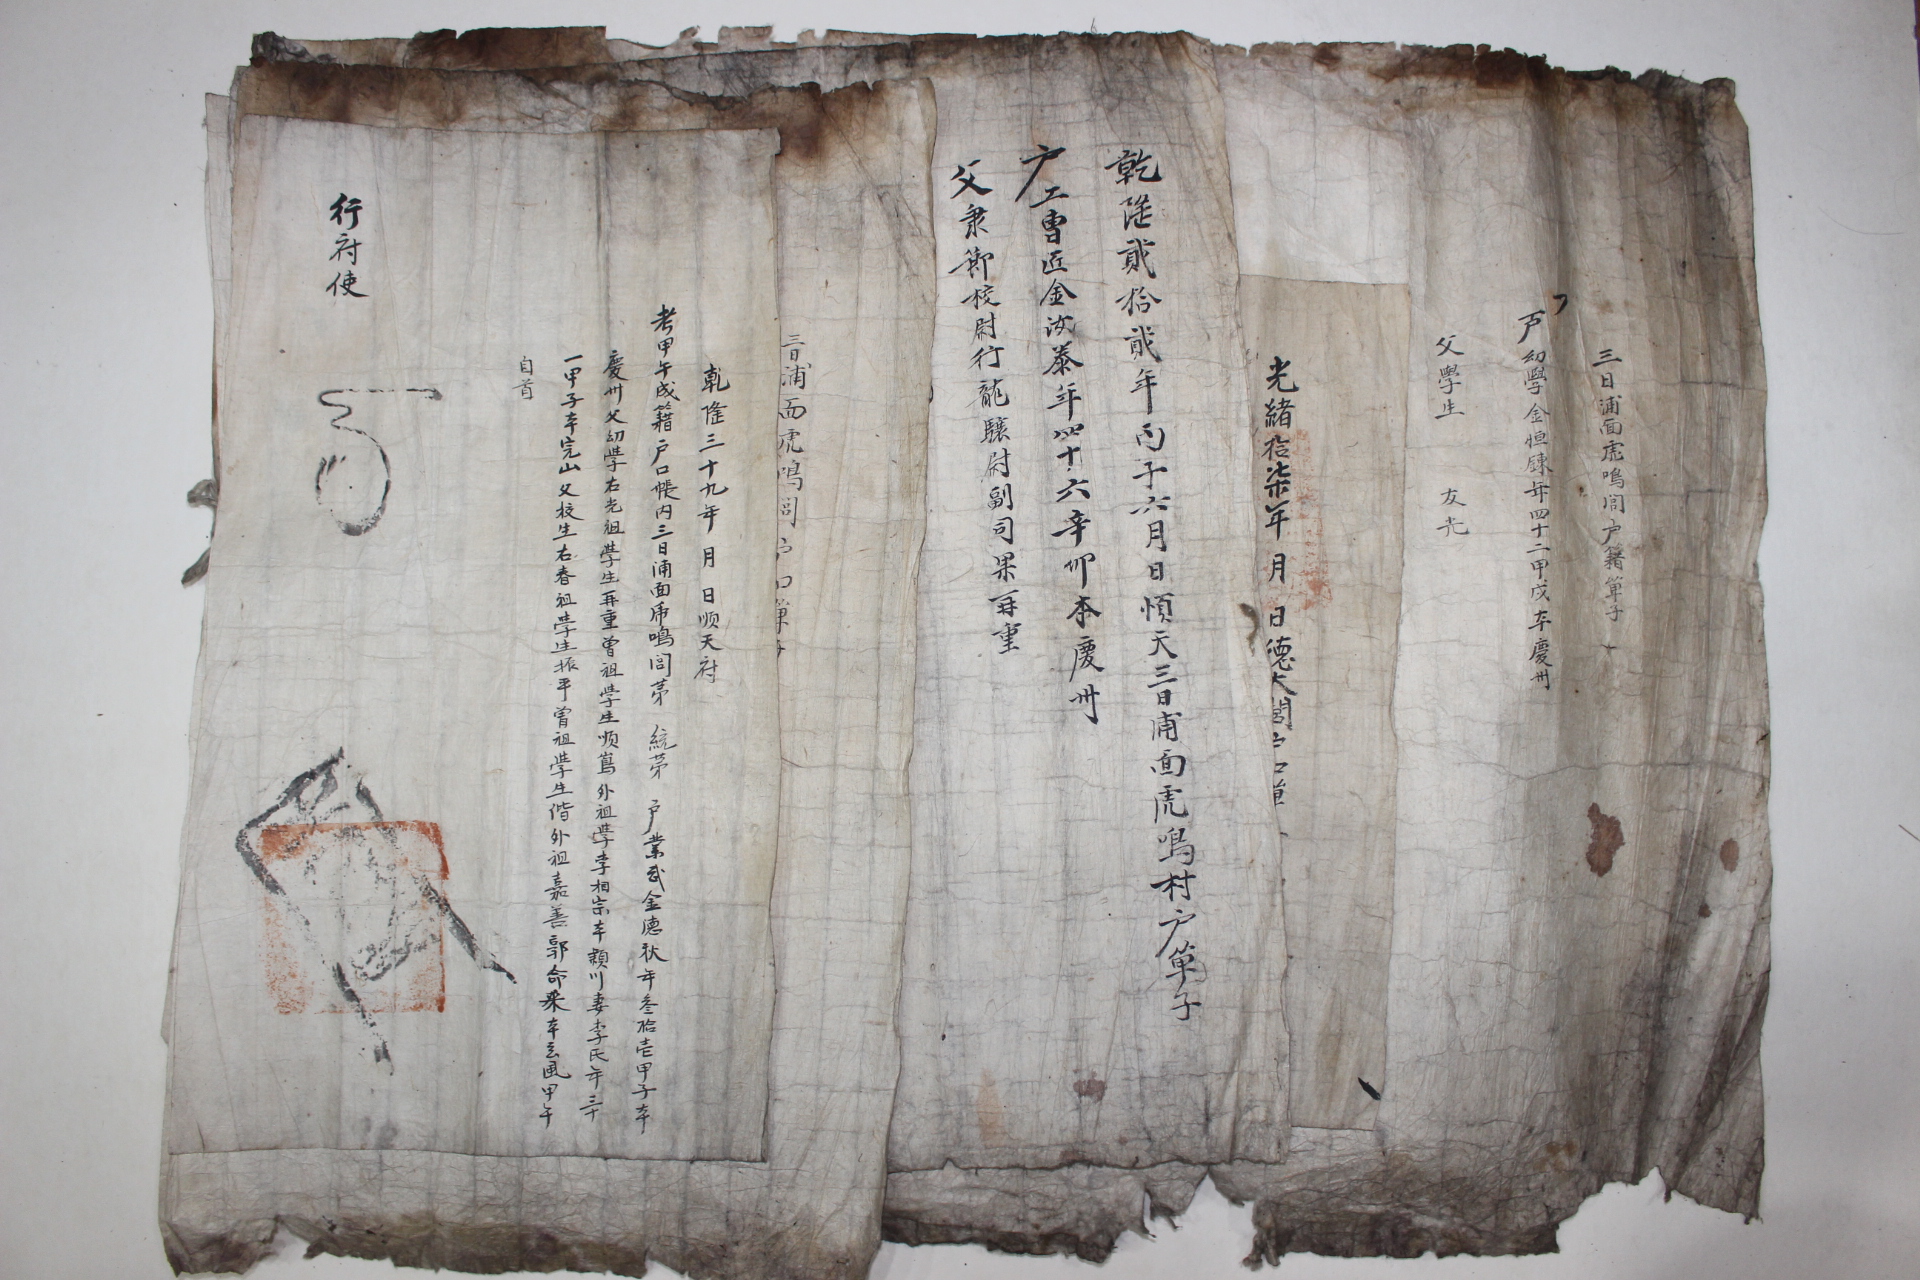 三日浦面虎鳴閭戶籍單子
戶幼學金恒鍊年四十二甲戌本慶州
父學生 友光
光緖拾柒年 月 日德大閭戶口單
乾隆貳拾貳年丙子六月日順天三日浦面虎鳴村戶單子
戶工曺匠金汝泰年四十六辛卯本慶州
父秉節校尉行龍驤尉副司果再重
三日浦面虎鳴閭戶口單子
乾隆三十九年 月 日順天府
考甲午成籍戶口帳內三日浦面虎鳴閭第 統第 戶業武金德秋年叁拾壱甲子本
慶州父幼學右光祖學生再重曾祖學生順嵩外祖學李相宗本潁川妻李氏年三十
一甲子本完山父校生右春祖學生振平曾祖學生偕外祖嘉善郭命 本玄風甲午
自首
行府使